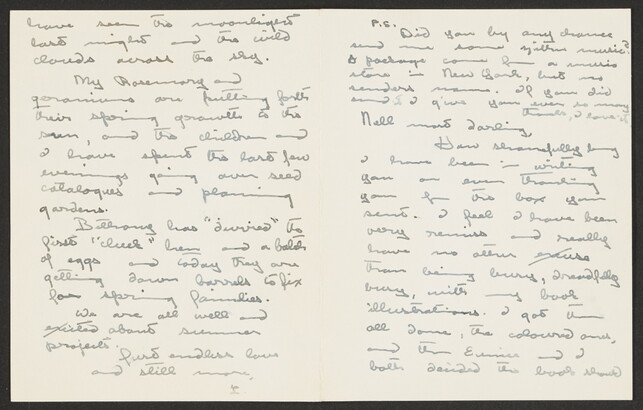 have seen the moonlight
last night and the wild
clouds across the sky.
My Rosemary and
geraniums are putting forth
their spring growth to the
sun, and the children and
I have spent the last few
evenings going over seed
catalogues and planning
gardens.
has "durried" the
first "cluck" hen and a batch
of eggs and today they are
getting down barrels to fix
for spring families.
We are all well and
excited about summer
projects.
Just endless love
and still more,
P.S.
Did you by any chance
send me some zither music?
A package came from a music
store in New York, but no
senders name. If you did
send it I give you ever so many
thanks, I love it
Nell most darling,
How shamefully long
I have been in writing
you or even thanking
you for the box you
sent. I feel I have been
very remiss and really
have no other excuse
than being busy, dreadfully
busy, with my book
illustrations. I got them
all done, the coloured ones,
and then Eunice and I
both decided the book should